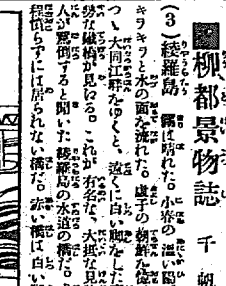 柳都景物誌
千
(3) 綾羅島 霧は晴れた。小春の温い陽
キラキラと水の面を流れた。虚子の朝鮮を偲
つゝ大同江畔をゆくと、遠くに白い脚をした
勢な鐵橋が見ゐる。これが有名な、大抵な見
人が罵倒すると聞いた綾羅島の水道の橋だ。
程倒らずには居られない橋だ。赤い橋は白い